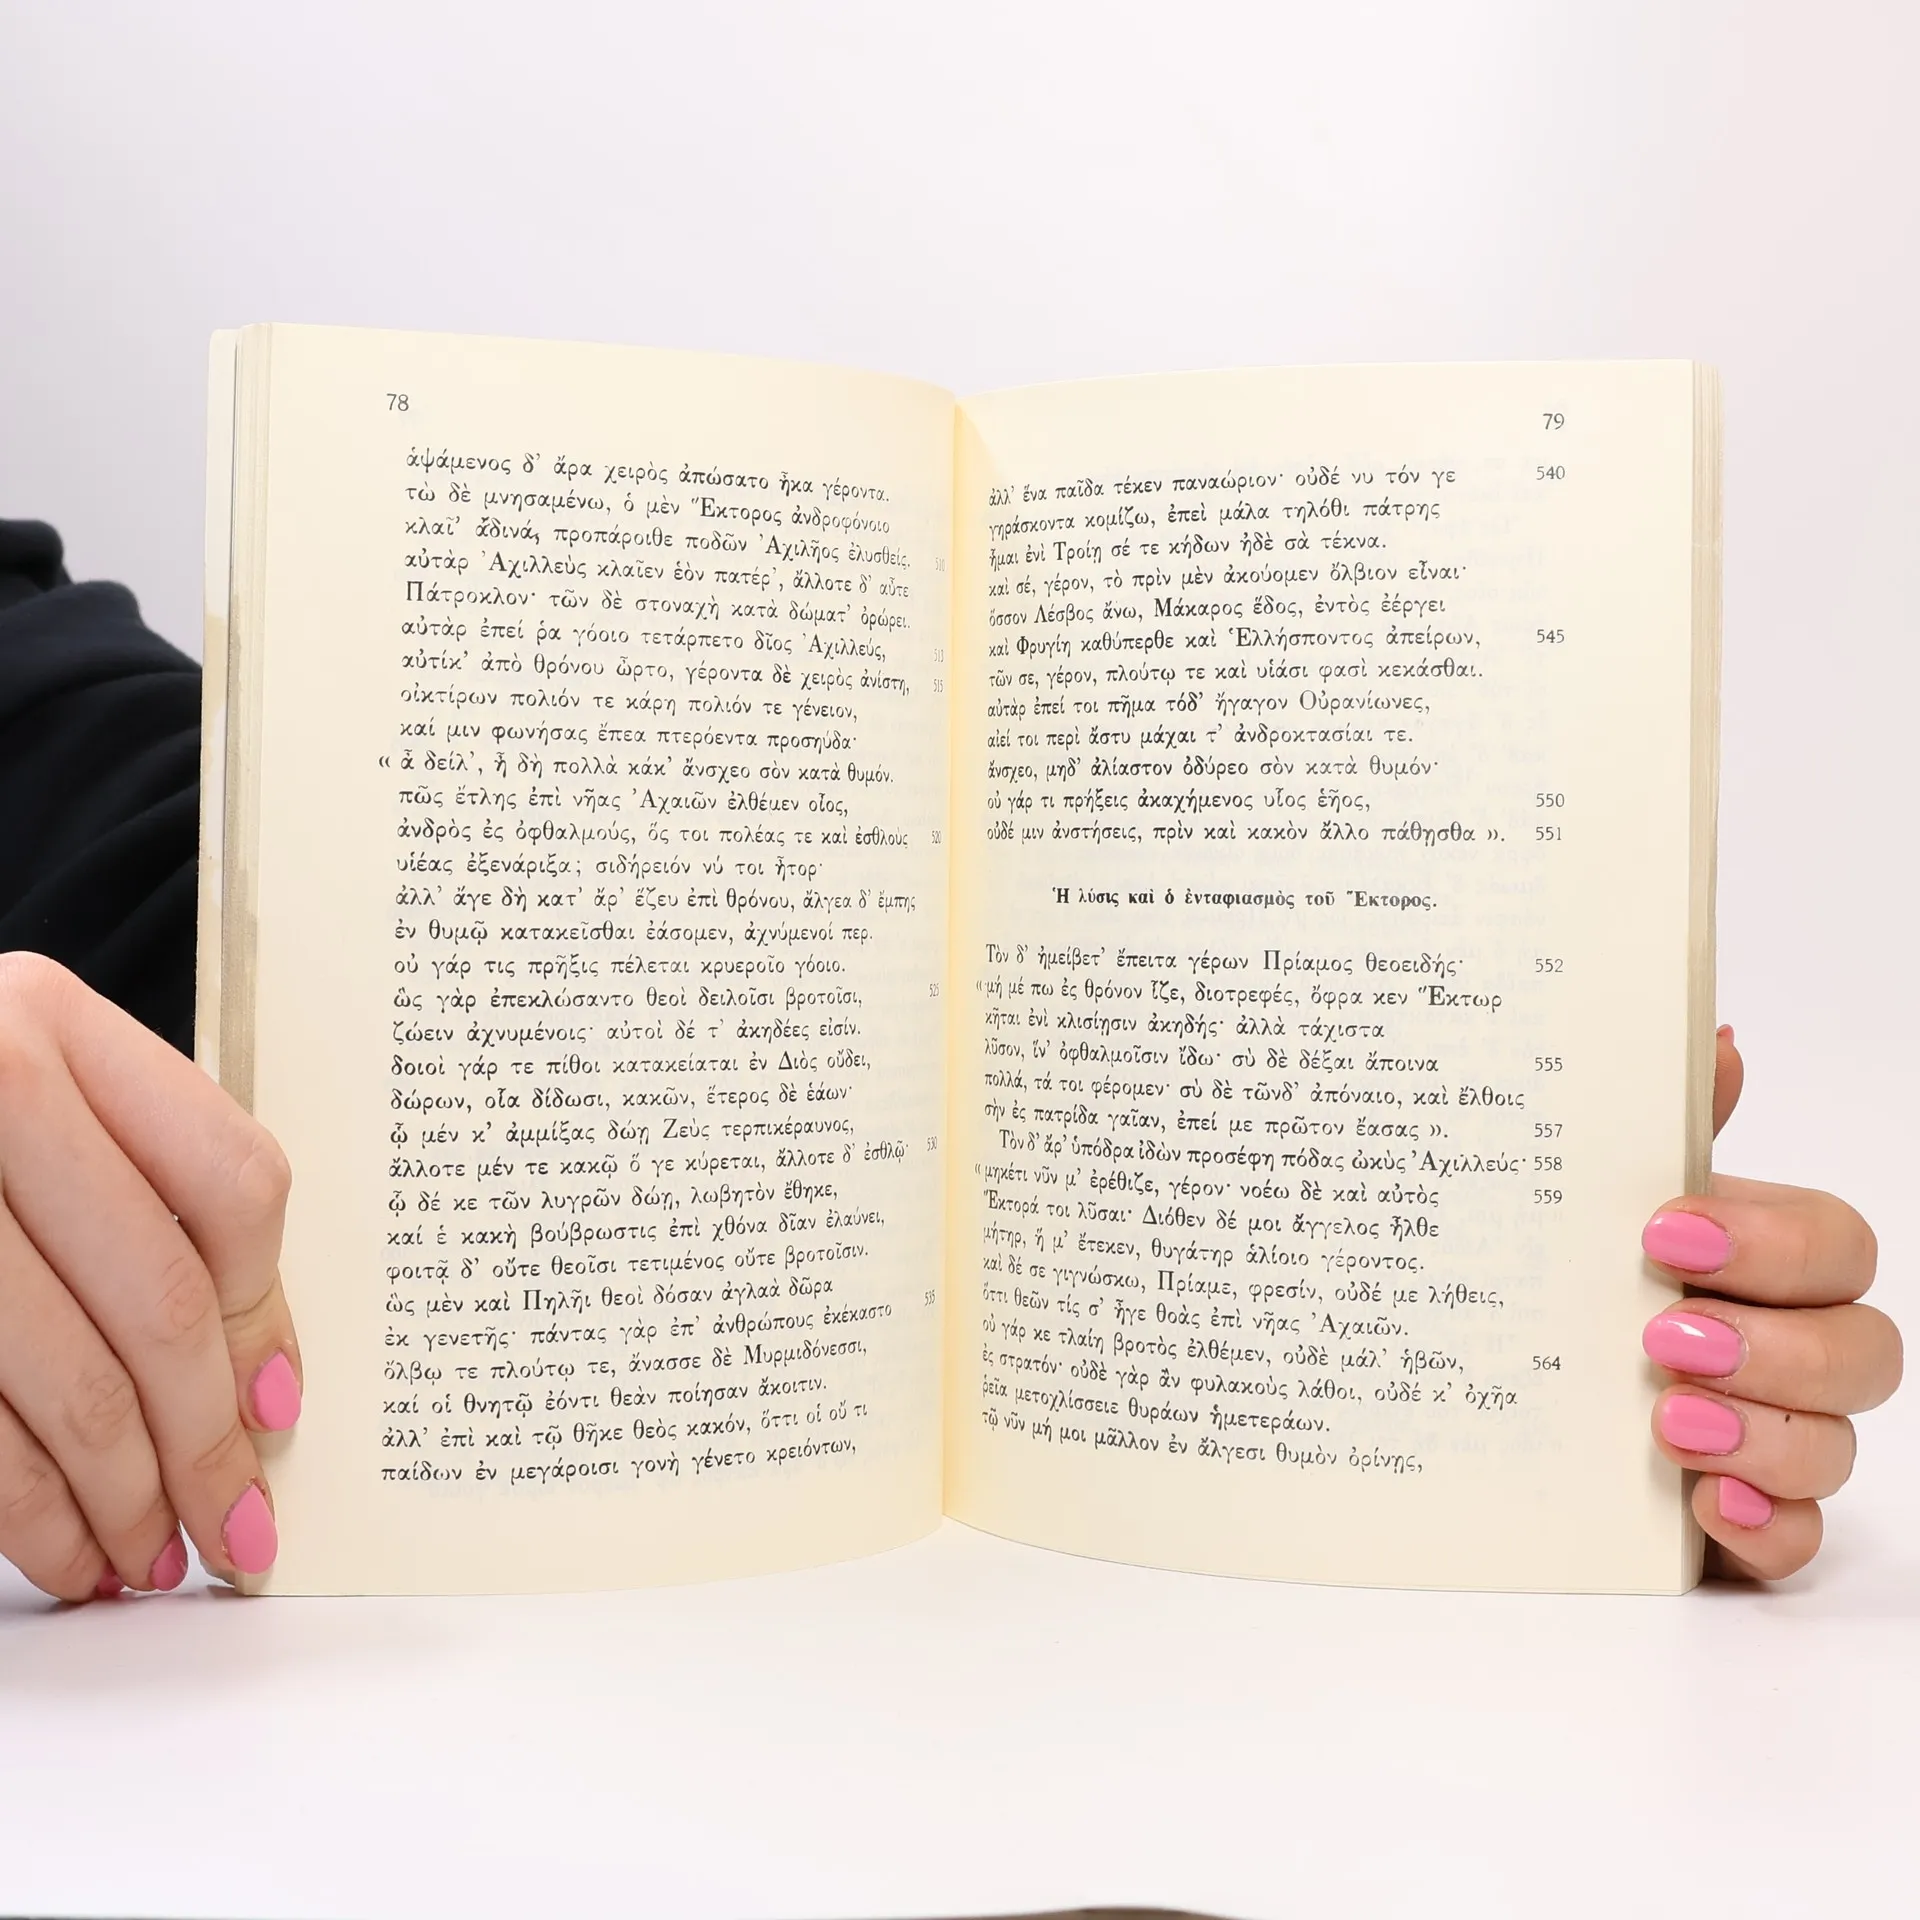 78
ἁψάμενος δ' ἄρα χειρὸς ἀπώσατο ἦκα γέροντα.
τὼ δὲ μνησαμένω, ὁ μὲν Ἕκτορος ἀνδροφόνοιο
κλαῖ' ἀδινά, προπάροιθε ποδῶν Ἀχιλῆος ἐλυσθείς, 510
αὐτὰρ Ἀχιλλεὺς κλαῖεν ἑὸν πατέρ', ἄλλοτε δ' αὖτε
Πάτροκλον· τῶν δὲ στοναχὴ κατὰ δώματ' ὀρώρει.
αὐτὰρ ἐπεί ῥα γόοιο τετάρπετο δῖος Ἀχιλλεύς, 513
αὐτίκ' ἀπὸ θρόνου ὦρτο, γέροντα δὲ χειρὸς ἀνίστη, 515
οἰκτίρων πολιόν τε κάρη πολιόν τε γένειον,
καί μιν φωνήσας ἔπεα πτερόεντα προσηύδα·
« ἆ δείλ', ἦ δὴ πολλὰ κάκ' ἄνσχεο σὸν κατὰ θυμόν.
πῶς ἔτλης ἐπὶ νῆας Ἀχαιῶν ἐλθέμεν οἶος,
ἀνδρὸς ἐς ὀφθαλμούς, ὅς τοι πολέας τε καὶ ἐσθλοὺς 520
υἱέας ἐξενάριξα; σιδήρειόν νύ τοι ἦτορ·
ἀλλ' ἄγε δὴ κατ' ἄρ' ἕζευ ἐπὶ θρόνου, ἄλγεα δ' ἔμπης
ἐν θυμῷ κατακεῖσθαι ἐάσομεν, ἀχνύμενοί περ.
οὐ γάρ τις πρῆξις πέλεται κρυεροῖο γόοιο.
ὣς γὰρ ἐπεκλώσαντο θεοὶ δειλοῖσι βροτοῖσι, 525
ζώειν ἀχνυμένοις· αὐτοὶ δέ τ' ἀκηδέες εἰσίν.
δοιοὶ γάρ τε πίθοι κατακείαται ἐν Διὸς οὔδει,
δώρων, οἷα δίδωσι, κακῶν, ἕτερος δὲ ἑάων·
ᾧ μέν κ' ἀμμίξας δώῃ Ζεὺς τερπικέραυνος,
ἄλλοτε μέν τε κακῷ ὅ γε κύρεται, ἄλλοτε δ' ἐσθλῷ· 530
ᾧ δέ κε τῶν λυγρῶν δώῃ, λωβητὸν ἔθηκε,
καί ἑ κακὴ βούβρωστις ἐπὶ χθόνα δῖαν ἐλαύνει,
φοιτᾷ δ' οὔτε θεοῖσι τετιμένος οὔτε βροτοῖσιν.
ὣς μὲν καὶ Πηλῆι θεοὶ δόσαν ἀγλαὰ δῶρα
ἐκ γενετῆς· πάντας γὰρ ἐπ' ἀνθρώπους ἐκέκαστο 535
ὄλβῳ τε πλούτῳ τε, ἄνασσε δὲ Μυρμιδόνεσσι,
καί οἱ θνητῷ ἐόντι θεὰν ποίησαν ἄκοιτιν.
ἀλλ' ἐπὶ καὶ τῷ θῆκε θεὸς κακόν, ὅττι οἱ οὔ τι
παίδων ἐν μεγάροισι γονὴ γένετο κρειόντων,
79
ἀλλ' ἕνα παῖδα τέκεν παναώριον· οὐδέ νυ τόν γε 540
γηράσκοντα κομίζω, ἐπεὶ μάλα τηλόθι πάτρης
ἧμαι ἐνὶ Τροίῃ σέ τε κήδων ἠδὲ σὰ τέκνα.
καὶ σέ, γέρον, τὸ πρὶν μὲν ἀκούομεν ὄλβιον εἶναι·
ὅσσον Λέσβος ἄνω, Μάκαρος ἕδος, ἐντὸς ἐέργει
καὶ Φρυγίη καθύπερθε καὶ Ἑλλήσποντος ἀπείρων, 545
τῶν σε, γέρον, πλούτῳ τε καὶ υἱάσι φασὶ κεκάσθαι.
αὐτὰρ ἐπεί τοι πῆμα τόδ' ἤγαγον Οὐρανίωνες,
αἰεί τοι περὶ ἄστυ μάχαι τ' ἀνδροκτασίαι τε.
ἄνσχεο, μηδ' ἀλίαστον ὀδύρεο σὸν κατὰ θυμόν·
οὐ γάρ τι πρήξεις ἀκαχήμενος υἷος ἑῆος, 550
οὐδέ μιν ἀνστήσεις, πρὶν καὶ κακὸν ἄλλο πάθησθα ». 551
Ἡ λύσις καὶ ὁ ἐνταφιασμὸς τοῦ Ἕκτορος.
Τὸν δ' ἠμείβετ' ἔπειτα γέρων Πρίαμος θεοειδής· 552
« μή μέ πω ἐς θρόνον ἷζε, διοτρεφές, ὄφρα κεν Ἕκτωρ
κῆται ἐνὶ κλισίῃσιν ἀκηδής· ἀλλὰ τάχιστα
λῦσον, ἵν' ὀφθαλμοῖσιν ἴδω· σὺ δὲ δέξαι ἄποινα 555
πολλά, τά τοι φέρομεν· σὺ δὲ τῶνδ' ἀπόναιο, καὶ ἔλθοις
σὴν ἐς πατρίδα γαῖαν, ἐπεί με πρῶτον ἔασας ». 557
Τὸν δ' ἄρ' ὑπόδρα ἰδὼν προσέφη πόδας ὠκὺς Ἀχιλλεύς· 558
« μηκέτι νῦν μ' ἐρέθιζε, γέρον· νοέω δὲ καὶ αὐτὸς 559
Ἕκτορά τοι λῦσαι· Διόθεν δέ μοι ἄγγελος ἦλθε
μήτηρ, ἥ μ' ἔτεκεν, θυγάτηρ ἁλίοιο γέροντος.
καὶ δέ σε γιγνώσκω, Πρίαμε, φρεσίν, οὐδέ με λήθεις,
ὅττι θεῶν τίς σ' ἦγε θοὰς ἐπὶ νῆας Ἀχαιῶν.
οὐ γάρ κε τλαίη βροτὸς ἐλθέμεν, οὐδὲ μάλ' ἡβῶν, 564
ἐς στρατόν· οὐδὲ γὰρ ἂν φυλακοὺς λάθοι, οὐδέ κ' ὀχῆα
ῥεῖα μετοχλίσσειε θυράων ἡμετεράων.
τῷ νῦν μή μοι μᾶλλον ἐν ἄλγεσι θυμὸν ὀρίνῃς,